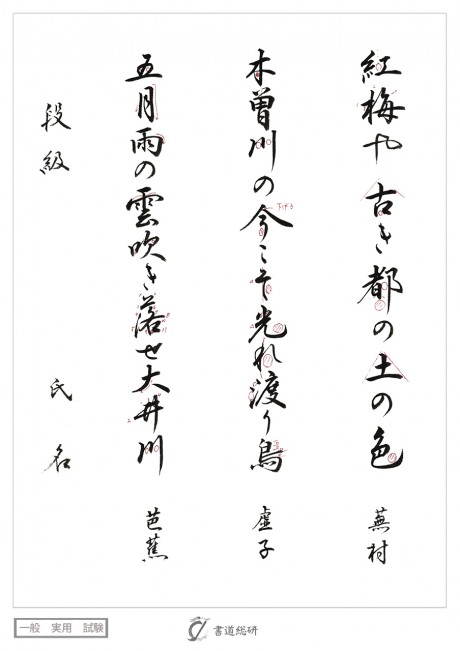 紅梅や古き都の土の色　蕪村
木曽川の今こそ光れ渡り鳥　虚子
五月雨の雲吹き落せ大井川　芭蕉
段級　氏名
一般　実用　試験
書道総研